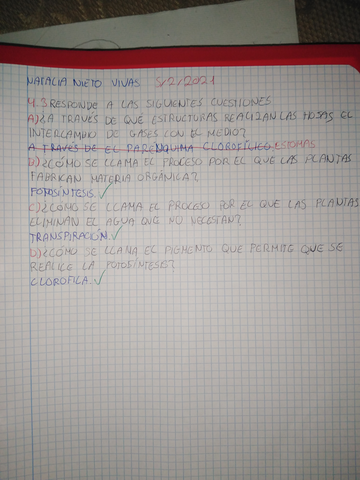 NATALIA NIETO VIVAS 5/2/2021
4.3 RESPONDE A LAS SIGUIENTES CUESTIONES
A) ¿A TRAVÉS DE QUE ESTRUCTURAS REALIZAN LAS HOJAS EL
INTERCAMBIO DE GASES CON EL MEDIO?
A TRAVÉS DE EL PARENQUIMA CLOROFÍLICO ESTOMAS
B) ¿CÓMO SE LLAMA EL PROCESO POR EL QUE LAS PLANTAS
FABRICAN MATERIA ORGÁNICA?
FOTOSÍNTESIS.
C) ¿CÓMO SE LLAMA EL PROCESO POR EL QUE LAS PLANTAS
ELIMINAN EL AGUA QUE NO NECESITAN?
TRANSPIRACIÓN.
D) ¿CÓMO SE LLAMA EL PIGMENTO QUE PERMITE QUE SE
REALICE LA FOTOSÍNTESIS?
CLOROFILA.